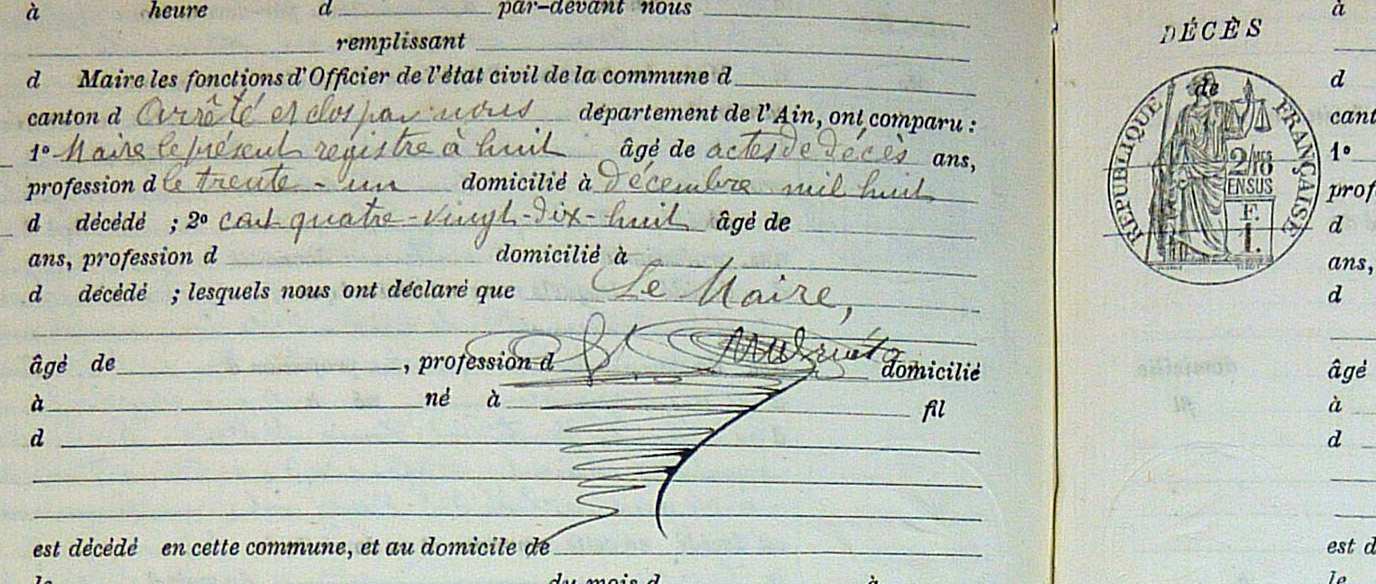 à heure d par-devant nous
remplissant
d Maire les fonctions d'Officier de l'état civil de la commune d
canton d Arrêté et clos par nous département de l'Ain, ont comparu :
1º Maire le présent registre à huit âgé de actes de décès ans,
profession d le trente-un domicilié à décembre mil huit
d décédé ; 2º cent quatre-vingt-dix-huit âgé de
ans, profession d domicilié à
d décédé ; lesquels nous ont déclaré que Le Maire,
âgé de , profession d domicilié
à né à fil
d
est décédé en cette commune, et au domicile de
le du mois d à
DÉCÈS
de
RÉPUBLIQUE FRANÇAISE
2/10
EN SUS
F.
1.
à
d
cant
1º
prof
d
ans,
d
âgé
à
d
est d
le
domicile
fil